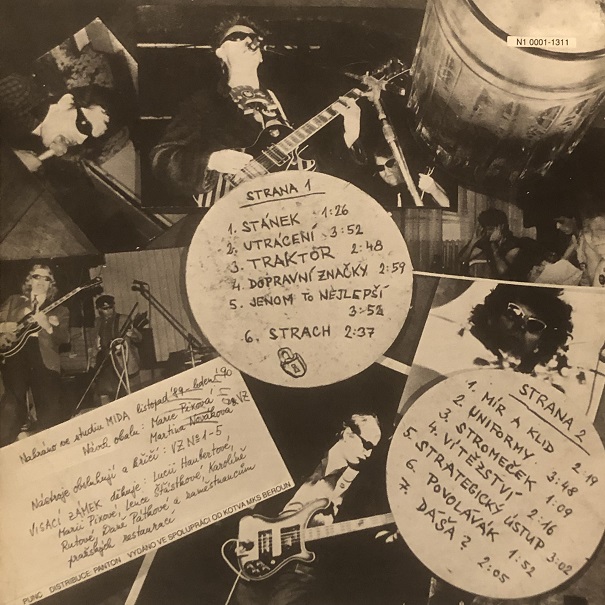 N1 0001-1311
STRANA 1
1. STÁNEK 1:26
2. UTRÁCENÍ 3:52
3. TRAKTOR 2:48
4. DOPRAVNÍ ZNAČKY 2:59
5. JENOM TO NEJLEPŠÍ
3:52
6. STRACH 2:37
STRANA 2
1. MÍR A KLID 2:19
2. UNIFORMY 3:48
3. STROMEČEK 1:09
4. VÍTĚZSTVÍ 2:16
5. STRATEGICKÝ ÚSTUP 3:02
6. POVOLAVÁK 1:52
7 DÁŠA 2 2:05
Nahráno ve studiu MIDA listopad '89 - leden '90
Návrh obalu: Marie Píxová
Martina Nováková
Nástroje obsluhují a křičí: VZ No 1-5
VISACÍ ZÁMEK děkuje: Lucii Haubertové,
Marii Píxové, Lence Šťástkové, Karolíně
Rutové, Daně Páthové a zaměstnancům
pražských restaurací
PUNC DISTRIBUCE: PANTON VYDÁNO VE SPOLUPRÁCI OD KOTVA MKS BEROUN